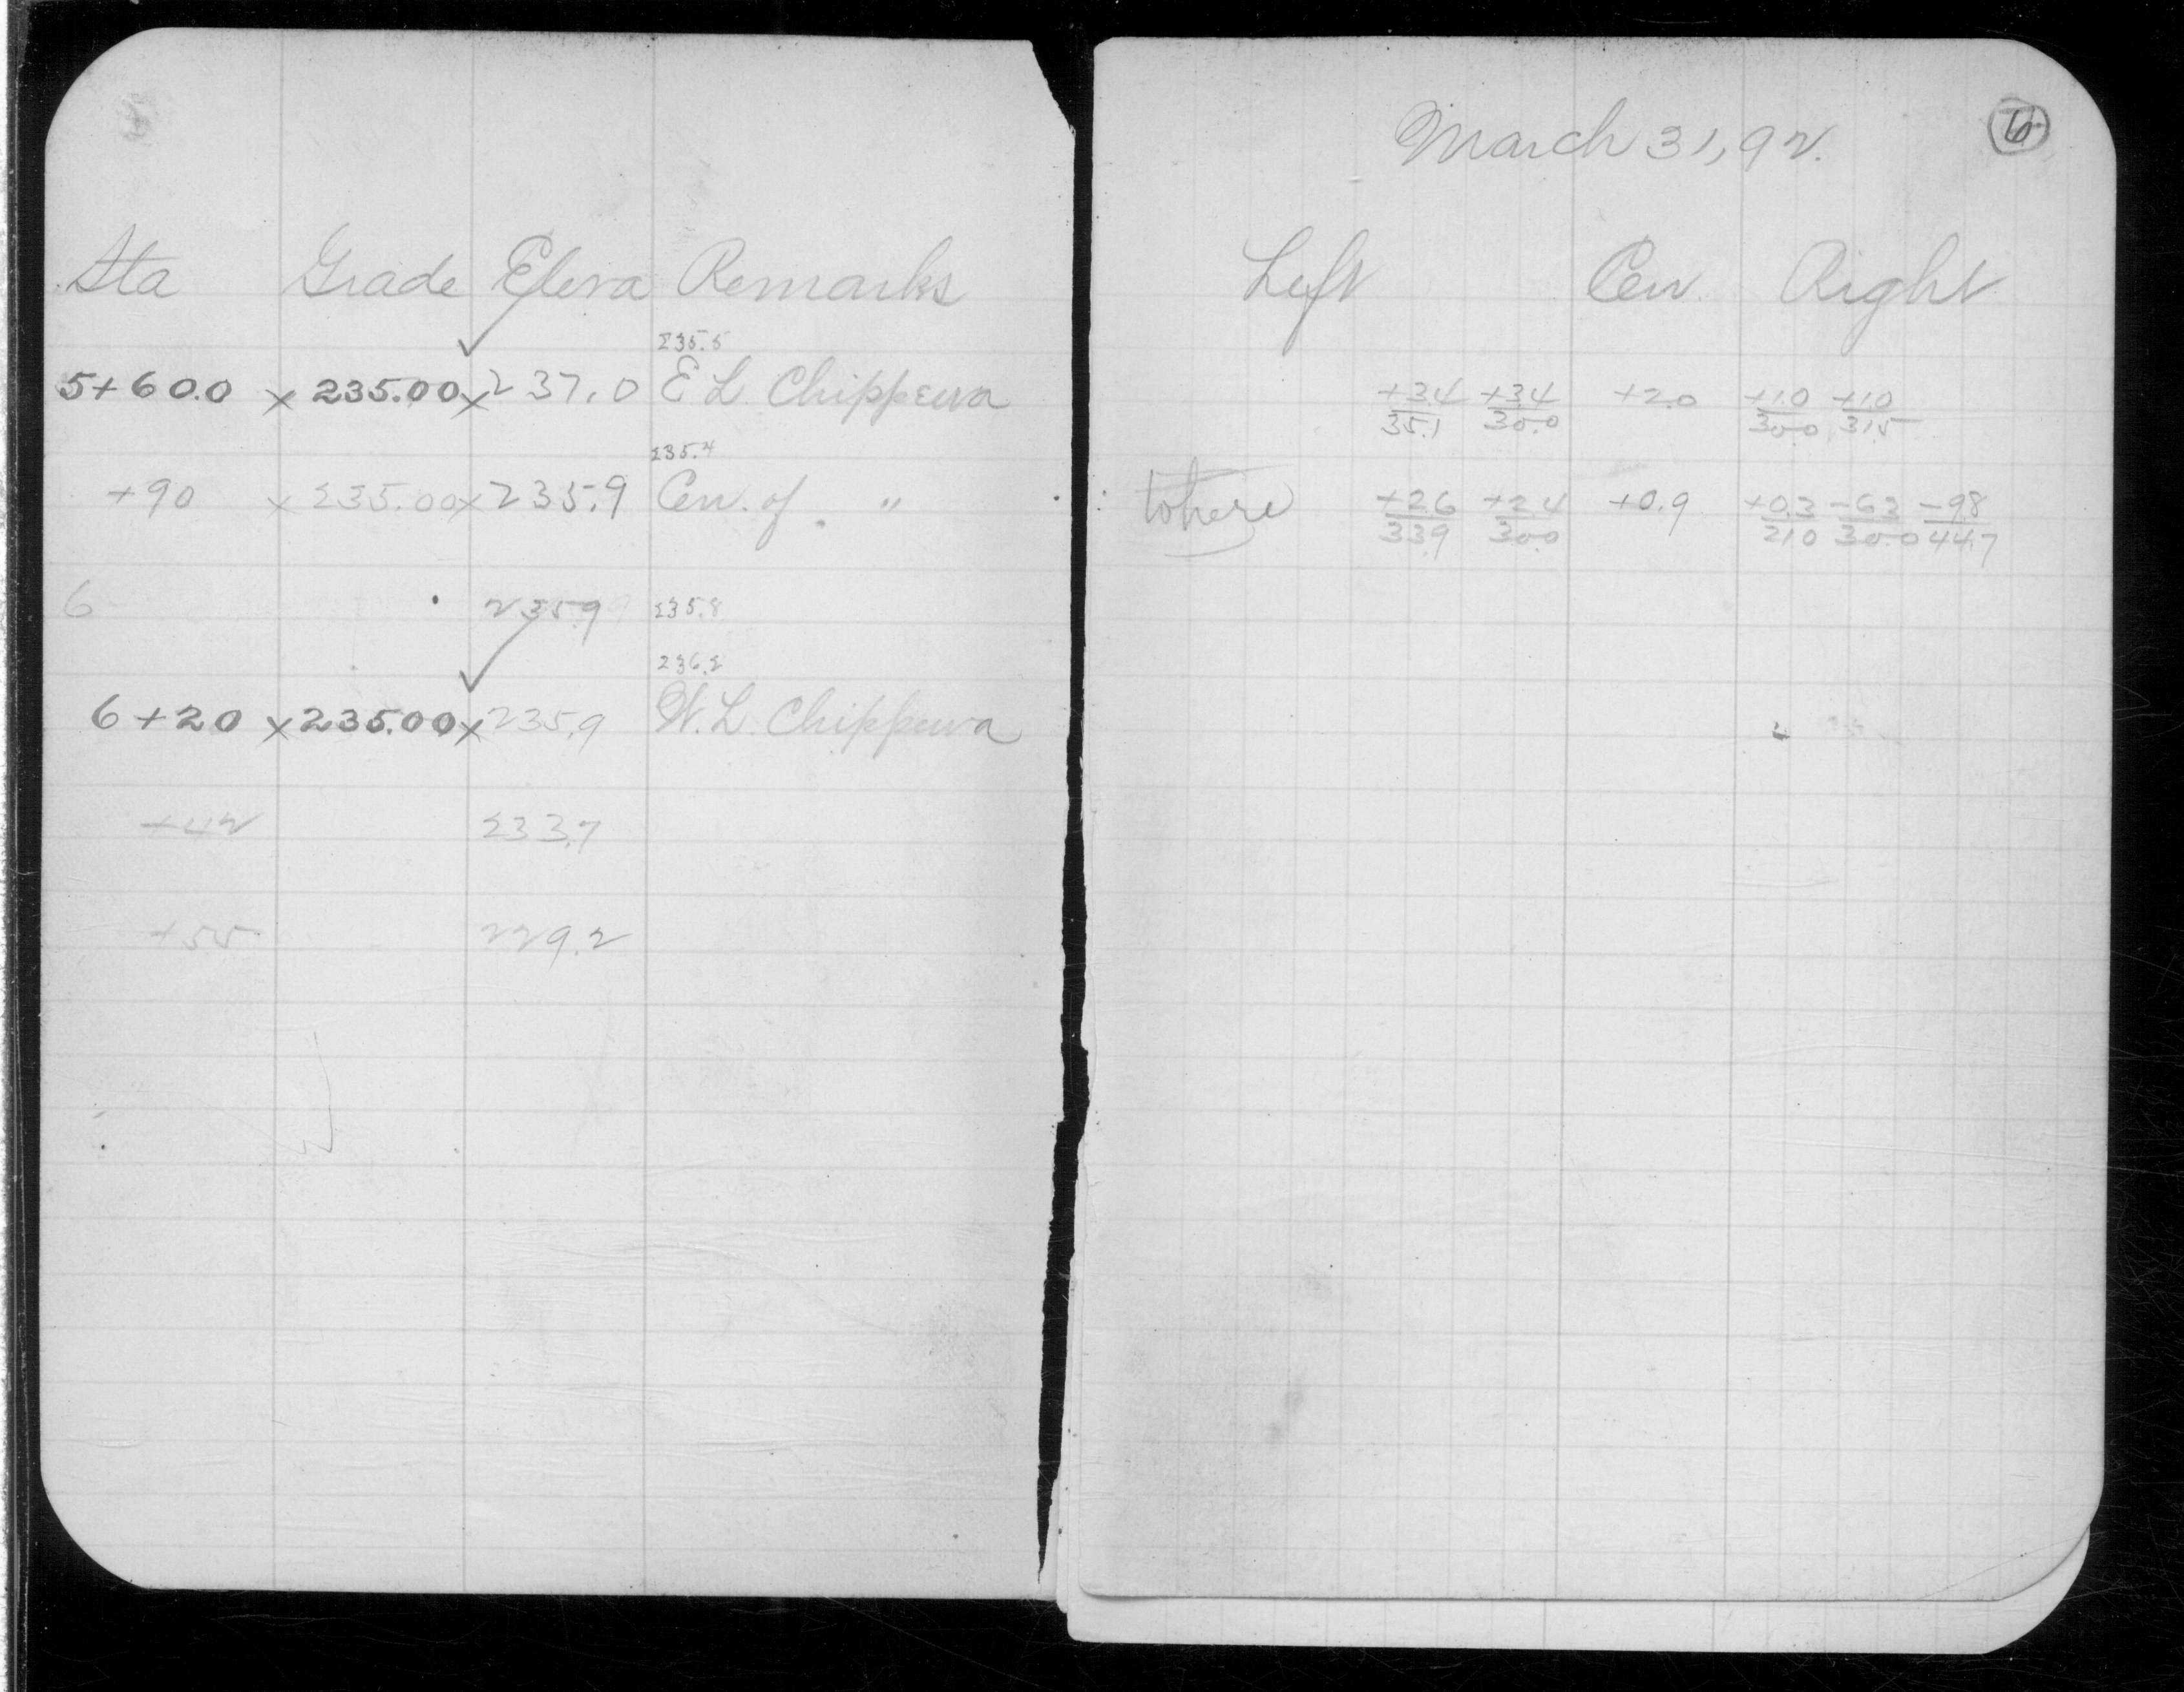 Sta Grade Eleva Remarks
235.5
5+60.0 x 235.00 x 237.0 E L Chippewa
235.4
+90 x 235.00 x 235.9 Cen. of "
6 235.9 235.8
236.2
6+20 x 235.00 x 235.9 W. L. Chippewa
+42 233.7
+55 229.2
March 31, 92.
6
Left Cen. Right
+3.4 +3.4 +2.0 +1.0 +1.0
35.1 30.0 30.0 31.5
to here +2.6 +2.4 +0.9 +0.3 -6.3 -9.8
33.9 30.0 21.0 30.0 44.7